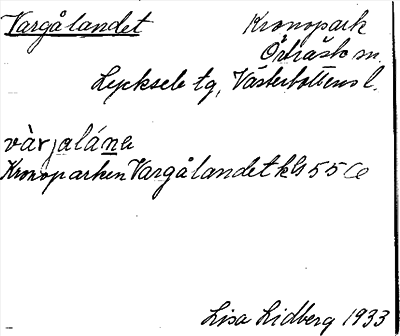 Vargålandet Kronopark
Örträsk sn.
Lycksele tg, Västerbottens l.
vàrjalánɛ
Kronoparken Vargålandet kbl 55 Co
Lisa Lidberg 1933